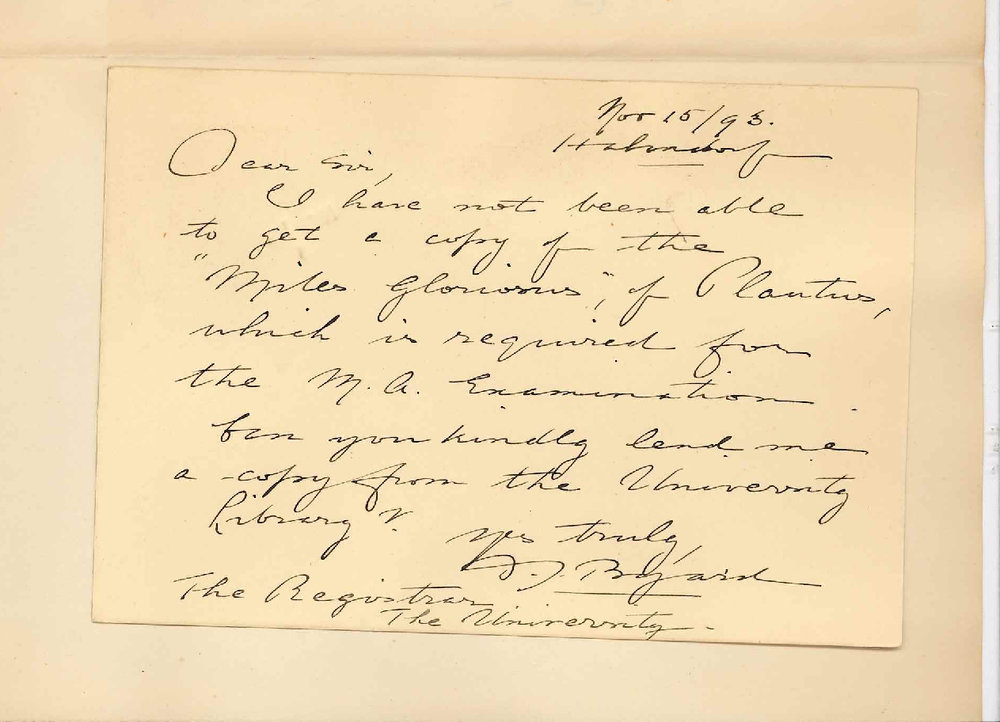 Nov 15/93.
Hahndorf
Dear Sir,
I have not been able
to get a copy of the
"Miles Gloriosus", of Plautus,
which is required for
the M. A. Examination.
Can you kindly lend me
a copy from the University
Library?
Yrs truly,
D. J. Byard
The Registrar
The University.